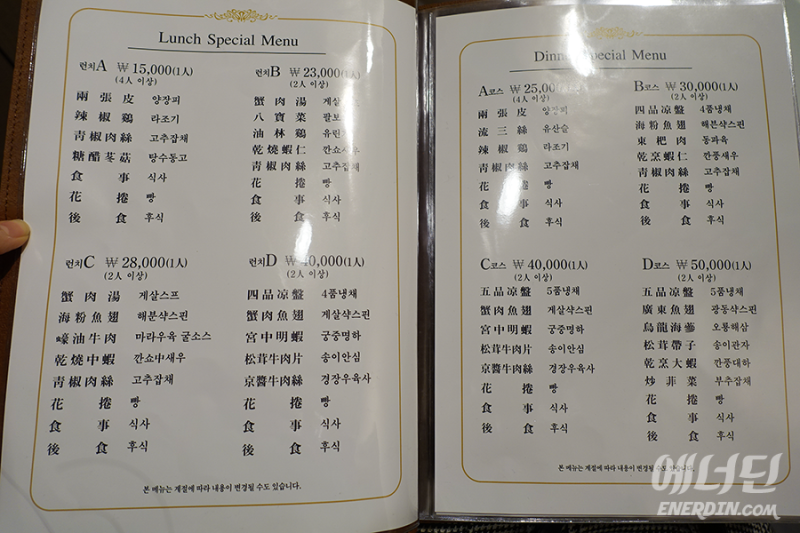 Lunch Special Menu
런치A ₩ 15,000(1人)
(4人 이상)
兩張皮 양장피
辣椒鷄 라조기
靑椒肉絲 고추잡채
糖醋苳菇 탕수동고
食事 식사
花捲 빵
後食 후식
런치B ₩ 23,000(1人)
(2人 이상)
蟹肉湯 게살
八寶菜 팔보
油林鷄 유린
乾燒蝦仁 깐쇼새우
靑椒肉絲 고추잡채
花捲 빵
食事 식사
後食 후식
런치C ₩ 28,000(1人)
(2人 이상)
蟹肉湯 게살스프
海粉魚翅 해분샥스핀
蠔油牛肉 마라우육 굴소스
乾燒中蝦 깐쇼中새우
靑椒肉絲 고추잡채
花捲 빵
食事 식사
後食 후식
런치D ₩ 40,000(1人)
(2人 이상)
四品凉盤 4품냉채
蟹肉魚翅 게살샥스핀
宮中明蝦 궁중명하
松茸牛肉片 송이안심
京醬牛肉絲 경장우육사
花捲 빵
食事 식사
後食 후식
본 메뉴는 계절에 따라 내용이 변경될 수도 있습니다.
Dinner Special Menu
A코스 ₩ 25,000(1人)
(4人 이상)
兩張皮 양장피
流三絲 유산슬
辣椒鷄 라조기
靑椒肉絲 고추잡채
花捲 빵
食事 식사
後食 후식
B코스 ₩ 30,000(1人)
(2人 이상)
四品凉盤 4품냉채
海粉魚翅 해분샥스핀
東杷肉 동파육
乾烹蝦仁 깐풍새우
靑椒肉絲 고추잡채
花捲 빵
食事 식사
後食 후식
C코스 ₩ 40,000(1人)
(2人 이상)
五品凉盤 5품냉채
蟹肉魚翅 게살샥스핀
宮中明蝦 궁중명하
松茸牛肉片 송이안심
京醬牛肉絲 경장우육사
花捲 빵
食事 식사
後食 후식
D코스 ₩ 50,000(1人)
(2人 이상)
五品凉盤 5품냉채
廣東魚翅 광동샥스핀
烏龍海蔘 오룡해삼
松茸帶子 송이관자
乾烹大蝦 깐풍대하
炒菲菜 부추잡채
花捲 빵
食事 식사
後食 후식
본 메뉴는 계절에 따라 내용이 변경될 수도 있습니다.
에너딘
ENERDIN.COM